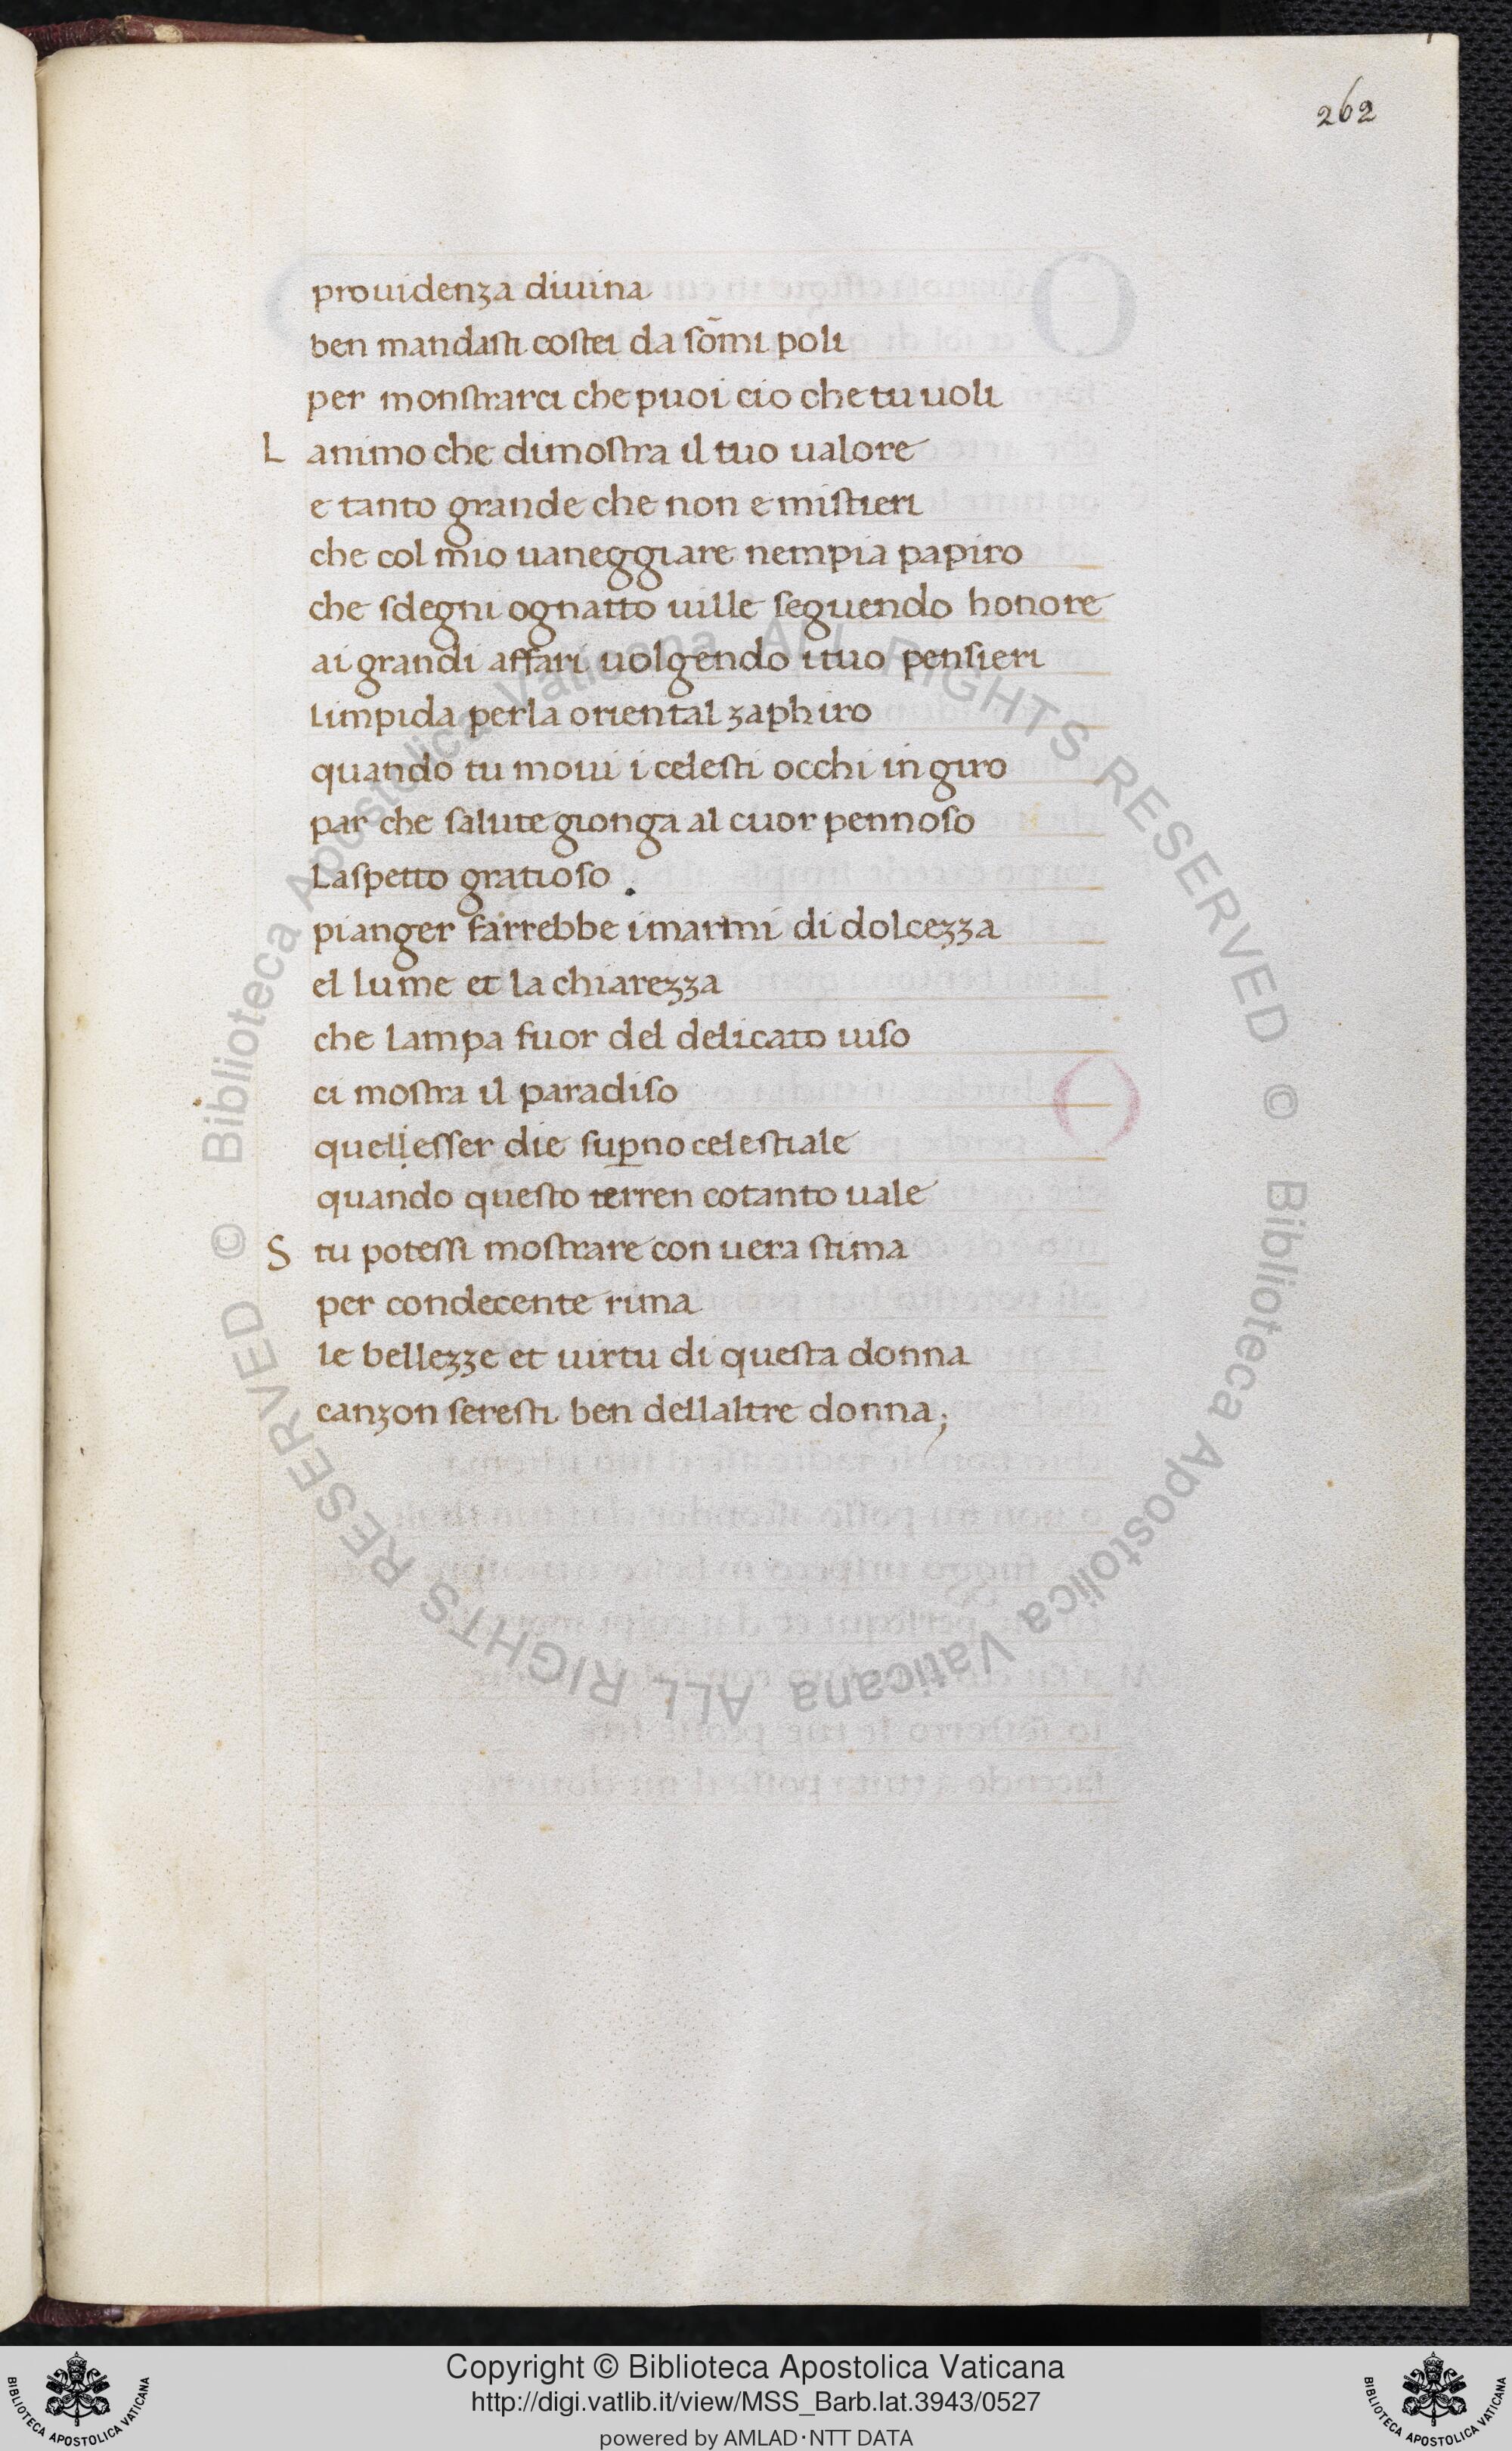 262
prouidenza diuina
ben mandasti costei da som̄i poli
per monstrarci che puoi cio che tu uoli
L animo che dimostra il tuo ualore
e tanto grande che non e mistieri
che col mio uaneggiare nempia papiro
che sdegni ognatto uille seguendo honore
ai grandi affari uolgendo i tuo pensieri
limpida perla oriental zaphiro
quando tu moui i celesti occhi in giro
par che salute gionga al cuor pennoso
Laspetto gratioso
pianger farrebbe i marmi di dolcezza
el lume et la chiarezza
che lampa fuor del delicato uiso
ci mostra il paradiso
quellesser die suꝑno celestiale
quando questo terren cotanto uale
S tu potessi mostrare con uera stima
per condecente rima
le bellezze et uirtu di questa donna
canzon seresti ben dellaltre donna;
© Biblioteca Apostolica Vaticana ALL RIGHTS RESERVED
© Biblioteca Apostolica Vaticana ALL RIGHTS RESERVED
Copyright © Biblioteca Apostolica Vaticana
http://digi.vatlib.it/view/MSS_Barb.lat.3943/0527
powered by AMLAD·NTT DATA
BIBLIOTECA APOSTOLICA VATICANA
BIBLIOTECA APOSTOLICA VATICANA